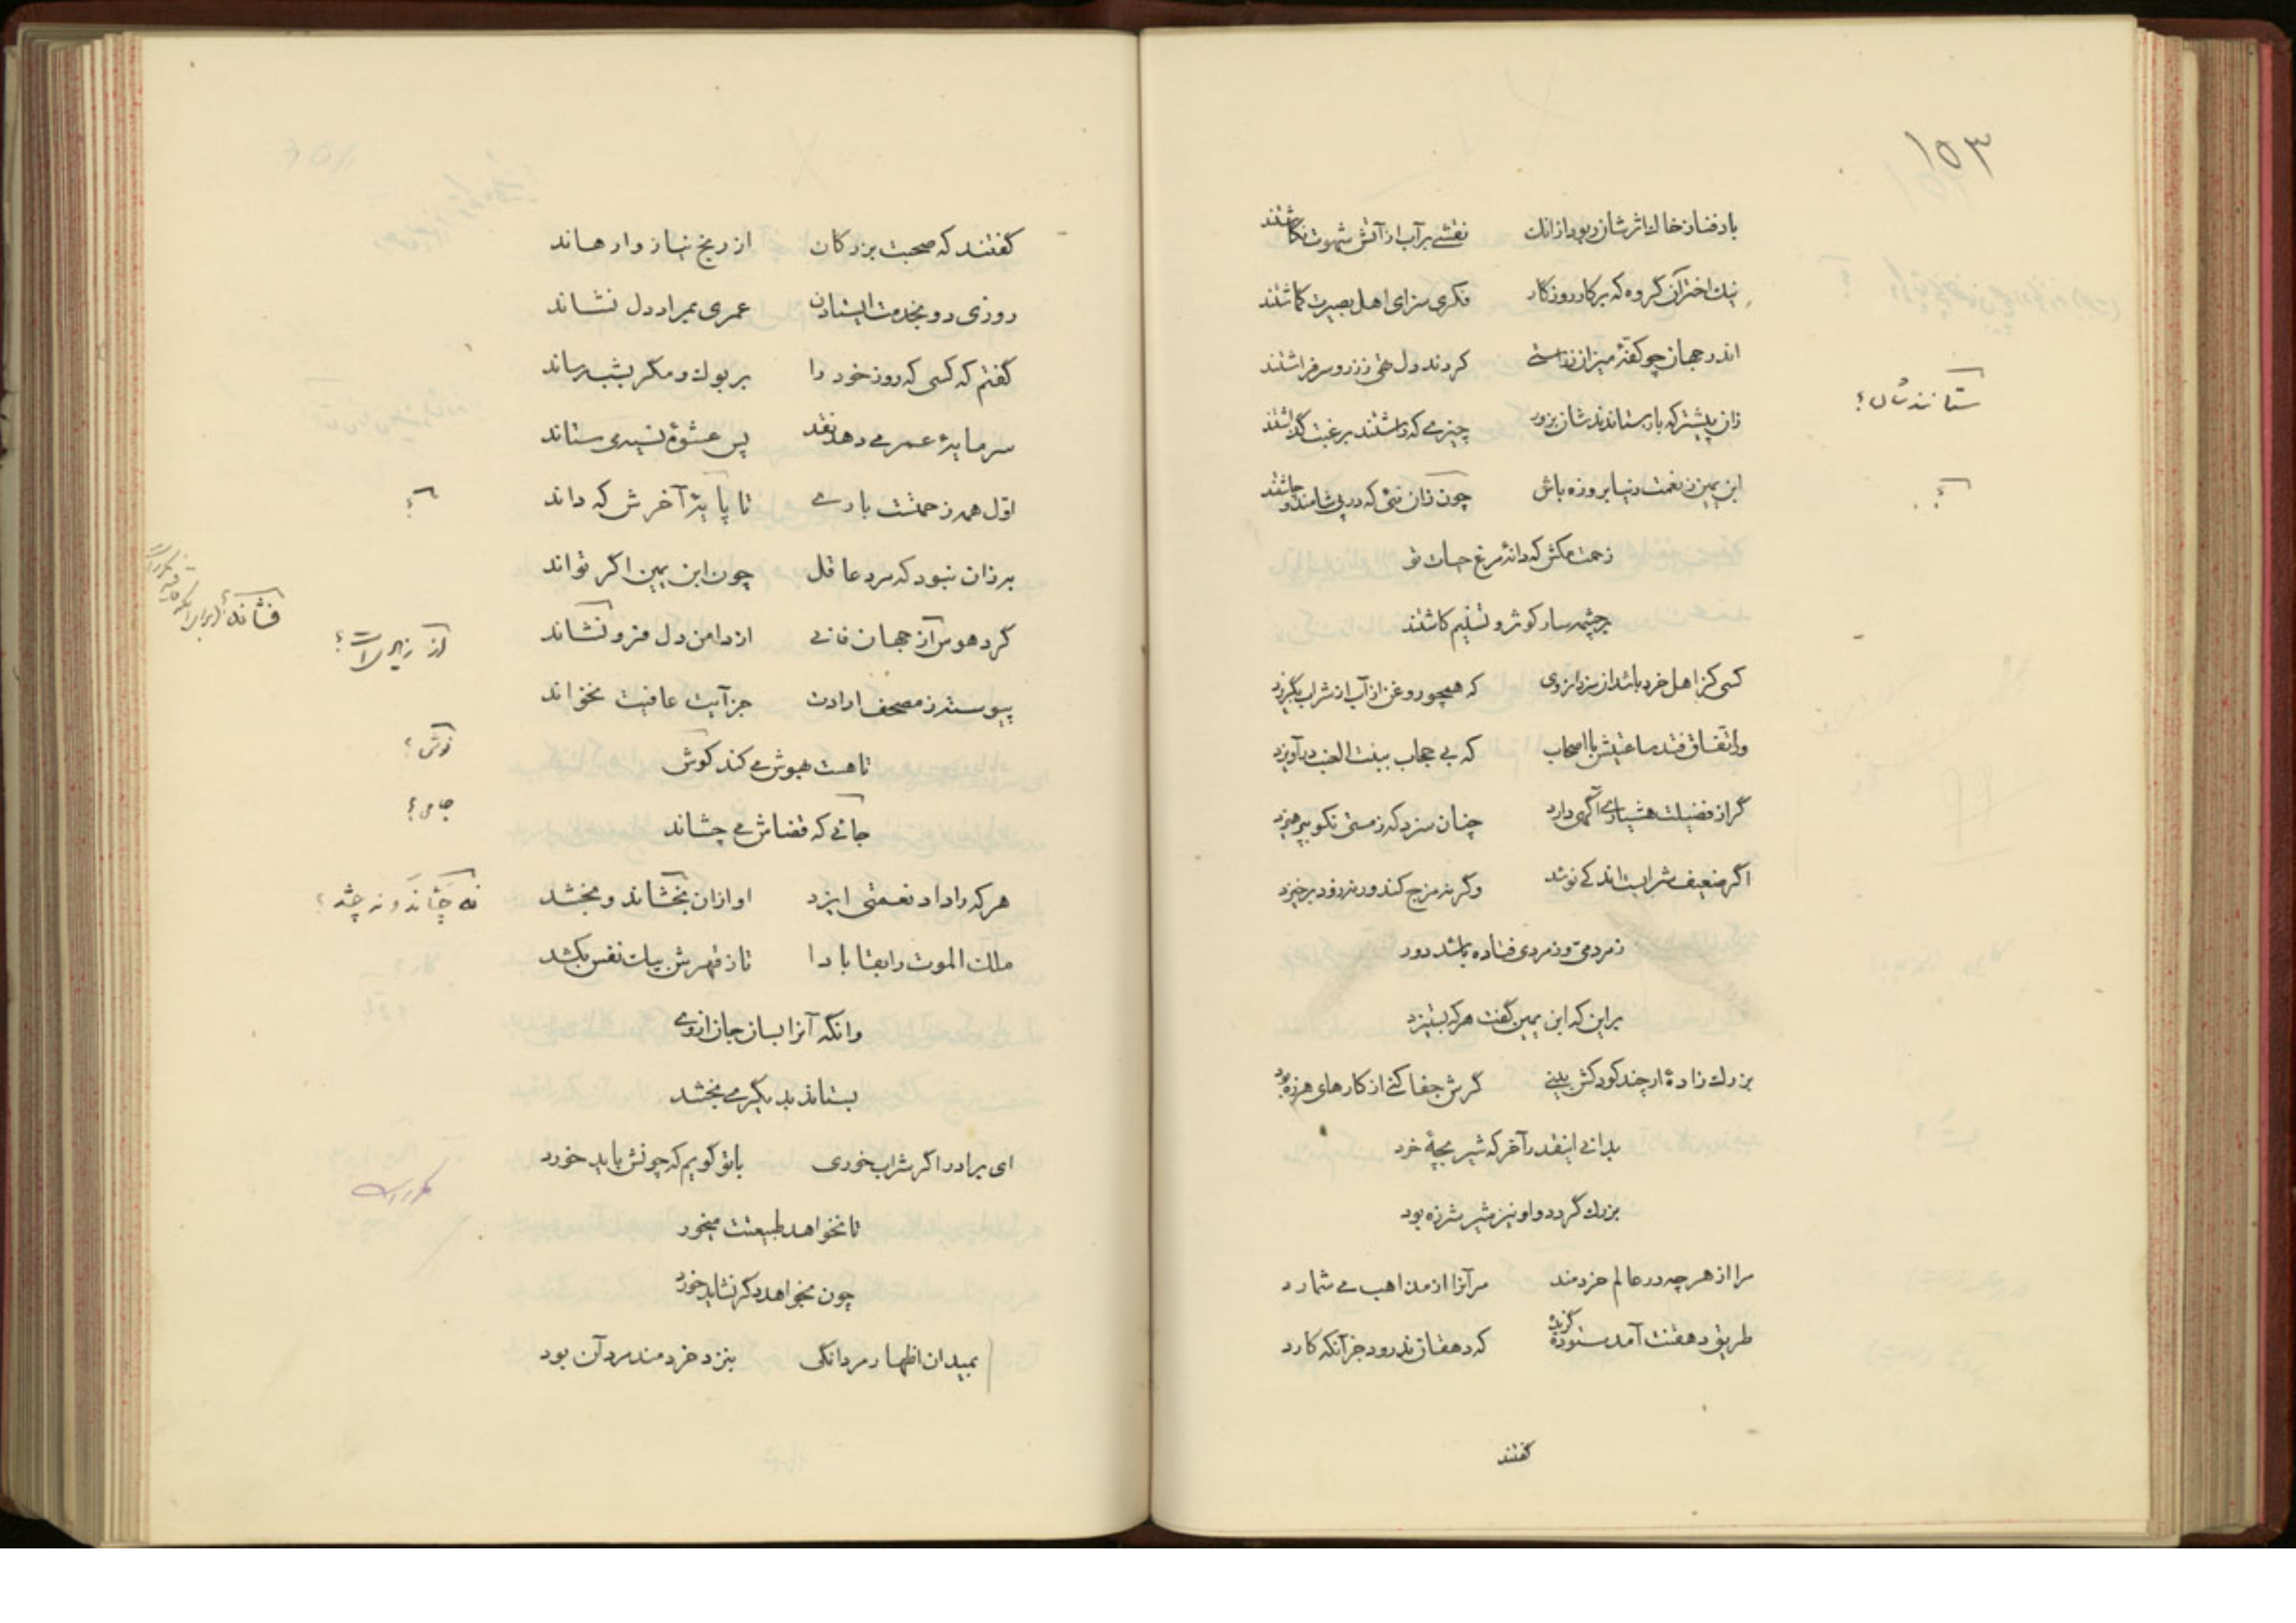 ۱۵۳
باد فنا ز خاک اثرشان ربود ازانک نقشے بر آب از آتش شهوت نگاشتند
نیک اختران گروه که بر کار روزگار فکری سزای اهل بصیرت گماشتند
اندر جهان چو کفهٔ میزان ز راستی کردند دل تهی ز زر و سر فراشتند
زان پیشتر که باز ستانندشان بزور چیزے که داشتند برغبت گذاشتند
ستانندشان؟
ابن یمین ز نعمت دنیا بروزه باش چون زان نئی که در پی شامند و چاشتند
؟
زحمت مکش که دانهٔ مرغ حیات تو
بر چشمه سار کوثر و تسنیم کاشتند
کسی کز اهل خرد باشد از سزد ازوی که همچو روغن از آب از شراب بگریزد
ور اتفاق فتد ساعتیش با اصحاب که بے حجاب ببنت العنب درآویزد
گر از فضیلت هشیارے آگهی دارد چنان سزد که ز مستی نکو بپرهیزد
اگر ضعیف شرابست اندکے نوشد وگرنه مزج کند ورنه زود برخیزد
ز مردمی و ز مردی فتاده باشد دور
بر این که ابن یمین گفت هر که بستیزد
بزرک زادهٔ ار چند کودکش بینے گرش جفا کنے از کارهای هرزه بود
بدانے اینقدر آخر که شیر بچهٔ خرد
بزرک گردد و او نیز شیر شرزه بود
مرا از هر چه در عالم خردمند مر آنرا از مذاهب مے شمارد
طریق دهقنت آمد ستوده گزیده که دهقان ندرود جز آنکه کارد
گفتند
گفتند که صحبت بزرکان از رنج نیاز وارهاند
روزی دو بخدمت ایستادن عمری بمراد دل نشاند
گفتم که کسی که روز خود را بر بوک و مکر بشب رساند
سرمایهٔ عمر مے دهد نقد پس عشوهٔ نسیه می ستاند
اوّل همه زحمتست بارے تا پایهٔ آخرش که داند
؟
بر زان نبود که مرد عاقل چون ابن یمین اگر تواند
فشاند؟
گرد هوس آز جهان فانے از دامن دل فرو نشاند
از زیر است؟
پیوسته ز مصحف ارادت جز آیت عافیت نخواند
تا هست هبوش مے کند کوش
نوش؟
جانے که قضاش مے چشاند
جامی؟
هر که را داد نعمتی ایزد او ازان بخشاند و بخشد
نه چشاند و نه چشد؟
ملک الموت را بقا بادا تا ز قهرش بیک نفس بکشد
وانگه آنرا بسان جان از وے
بستاند بدیگرے بخشد
ای برادر اگر شراب خوری با تو گویم که چونش باید خورد
مکرر است
تا نخواهد طبیعتت میخور
چون بخواهد دگر نشاید خورد
بمیدان اظهار مردانگی بنزد خردمند مرد آن بود